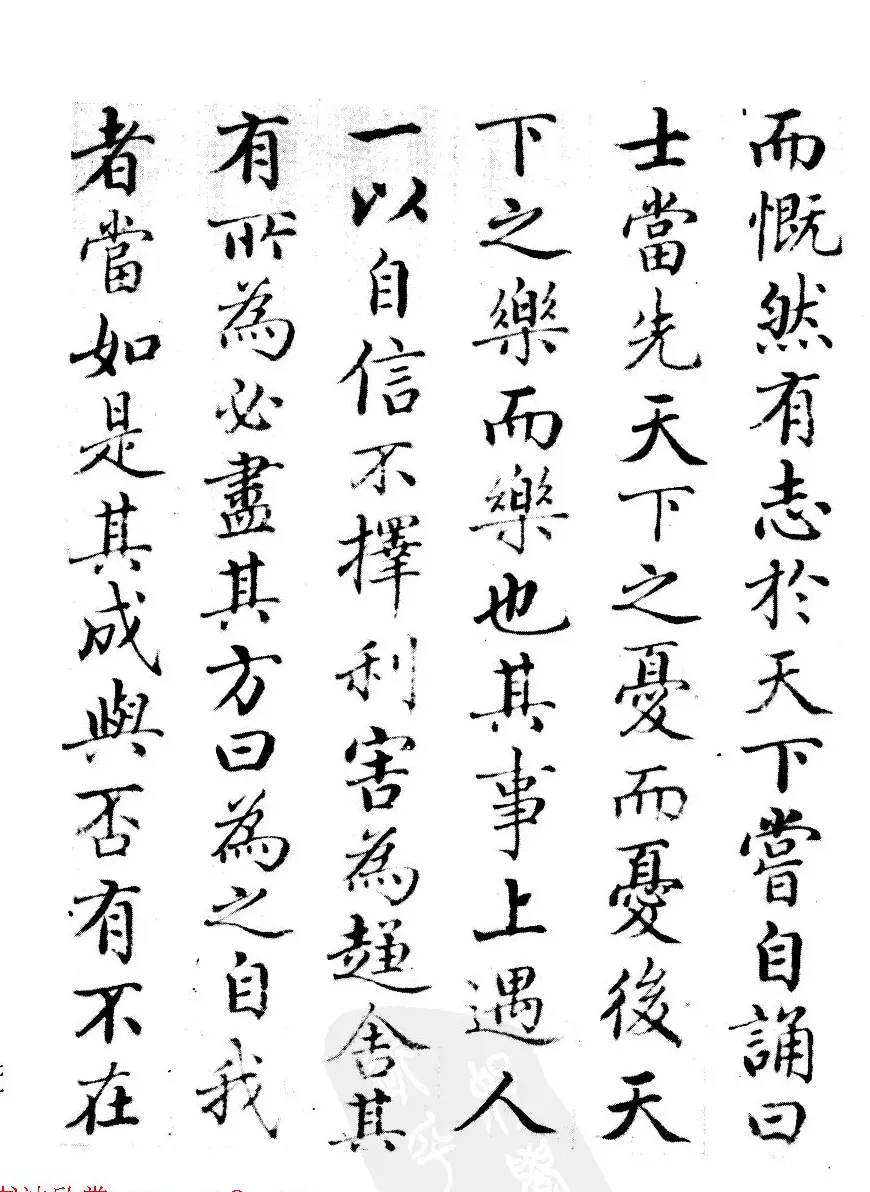 而慨然有志於天下嘗自誦曰
士當先天下之憂而憂後天
下之樂而樂也其事上遇人
一以自信不擇利害為趨舍其
有所為必盡其方曰為之自我
者當如是其成與否有不在